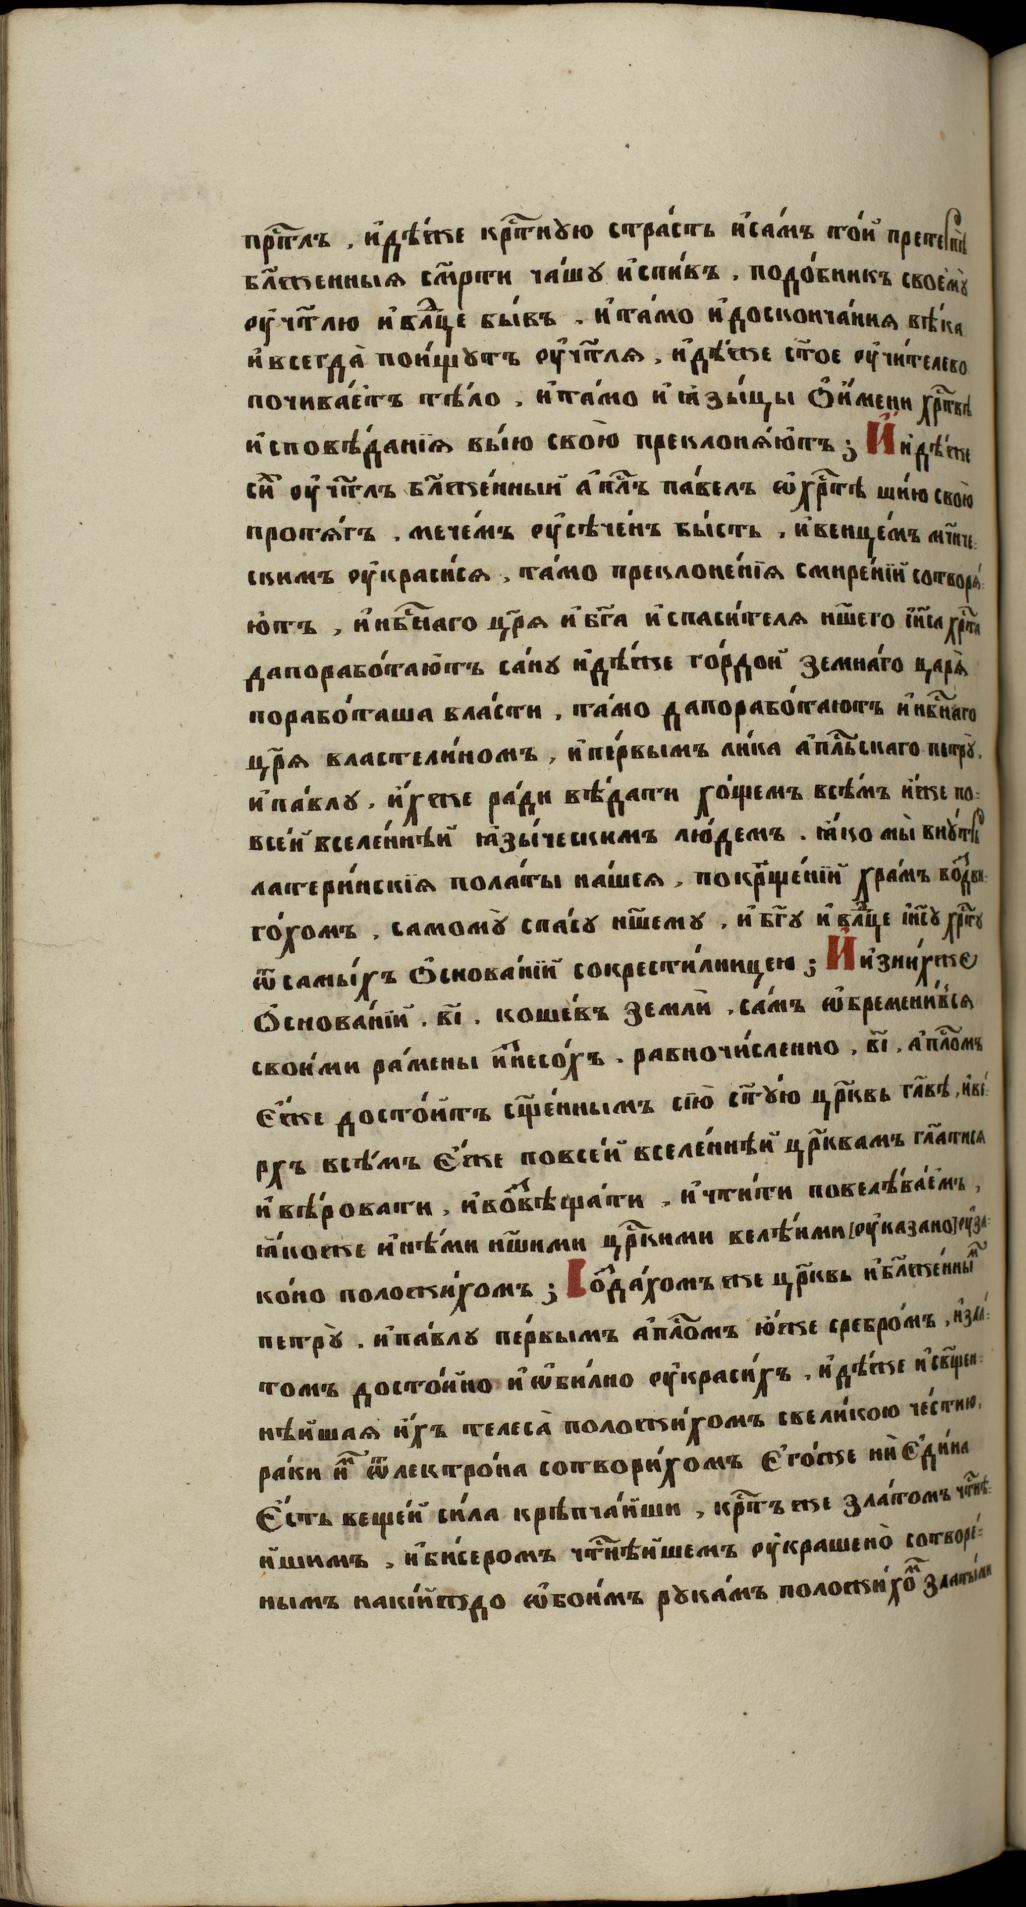 прⷭ҇тлъ , и҆дѣ́же крⷭ҇тную стра́сть и҆са́мъ то́й претерпѣ̀
бл҃женныѧ см҃рти ча́шу и҆спи́въ . подо́бникъ своемꙋ̀
ѹ҆чт҃лю и҆влⷣце бы́въ . и҆та́мо и҆досконча́ния вѣ́ка
и҆всегда̀ пои́щутъ ѹ҆чт҃лѧ , и҆дѣ́же ст҃ое ѹ҆чи́телево
почива́етъ тѣ́ло , и҆та́мо и҆ꙗ҆зы́цы ѻ҆и́мени хрⷭ҇твѣ
и҆сповѣ́данїѧ вы́ю свою̀ преклонѧ́ютъ ; И҆идѣ́же
сїи̑ ѹ҆чт҃лъ бл҃же́нный а҆пⷭ҇лъ па́велъ ѡ҆хрⷭ҇тѣ ши́ю свою̀
протѧ́гъ . мече́мъ ѹ҆сѣче́нъ бы́сть , и҆венце́мъ мч҃ниче-
скимъ ѹ҆краси́сѧ , та́мо преклоне́нїѧ смире́нїй сотворѧ́-
ютъ , и҆нбⷭ҇наго цр҃ѧ и҆бг҃а и҆спаси́телѧ нш҃его і҆и҃са хрⷭ҇та
дапорабо́таютъ са́ну и҆дѣ́же го́рдой земна́го царѧ̀
порабо́таша вла́сти , та́мо дапорабо́таютъ и҆нбⷭ҇наго
цр҃ѧ властели́номъ , и҆пе́рвымъ лика а҆пⷭ҇льскаго петру̀ .
и҆па́влу . и҆́хже ра́ди вѣ́дати хо́щемъ всѣ́мъ и҆́же по-
все́й вселе́ннѣй ꙗ҆зы́ческимъ лю́демъ . ꙗ҆́ко мы̀ вну́трь
латери́нскїѧ пола́ты на́шеѧ , покрⷳ҇ще́нїй хра́мъ воⷥ҇дви-
го́хомъ , самому̀ спа́су нш҃ему , и҆бг҃у и҆влⷣце і҆и҃су хрⷭ҇ту
ѿсамы́хъ ѻ҆снова́нїй сокрести́лницею ; И҆изни́хже
ѻ҆снова́нїй . в҃і . коше́въ землѝ . са́мъ ѡ҆бремени́всѧ
свои́ми ра́мены и҆ⷥнесо́хъ . равночи́сленно , в҃і , а҆пⷭ҇ломъ
Є҆́же досто́итъ сщ҃е́ннымъ сїю̀ ст҃у́ю цр҃ковь гл҃вѣ , и҆ве́-
рхъ всѣ́мъ Є҆́же повсе́й вселе́ннѣй цр҃квамъ гл҃атисѧ
и҆вѣ́ровати , и҆воⷥвѣща́ти , и҆чти́ти повелѣва́емъ ,
ꙗ҆́коже и҆нѣ́ми нш҃ими црⷭ҇кими велѣ́ими [ѹ҆казано] ѹ҆за-
ко́но положи́хомъ ; Соⷥда́хомъ же цр҃ковь и҆бл҃же́нныⷨ
петру̀ . и҆па́влу пе́рвымъ а҆пⷭ҇ломъ ю҆́же сребро́мъ , и҆зла́-
томъ досто́йно и҆ѡ҆би́лно ѹ҆краси́хъ . и҆дѣ́же и҆свѧще́н-
нѣйшаѧ и҆́хъ телеса̀ положи́хомъ свели́кою че́стию .
раки и҆ⷨ ѿлектро́на сотвори́хомъ Є҆го́же ни Є҆ди́на
Є҆́сть веще́й си́ла крѣпча́йши , крⷭ҇тъ же зла́томъ чтⷭ҇нѣ́-
йшимъ , и҆би́сером чтⷭ҇нѣ́йшемъ ѹ҆крашено̀ сотворе́-
нымъ накі́йждо ѡ҆бои́мъ рука́мъ положи́хоⷨ златы́ми